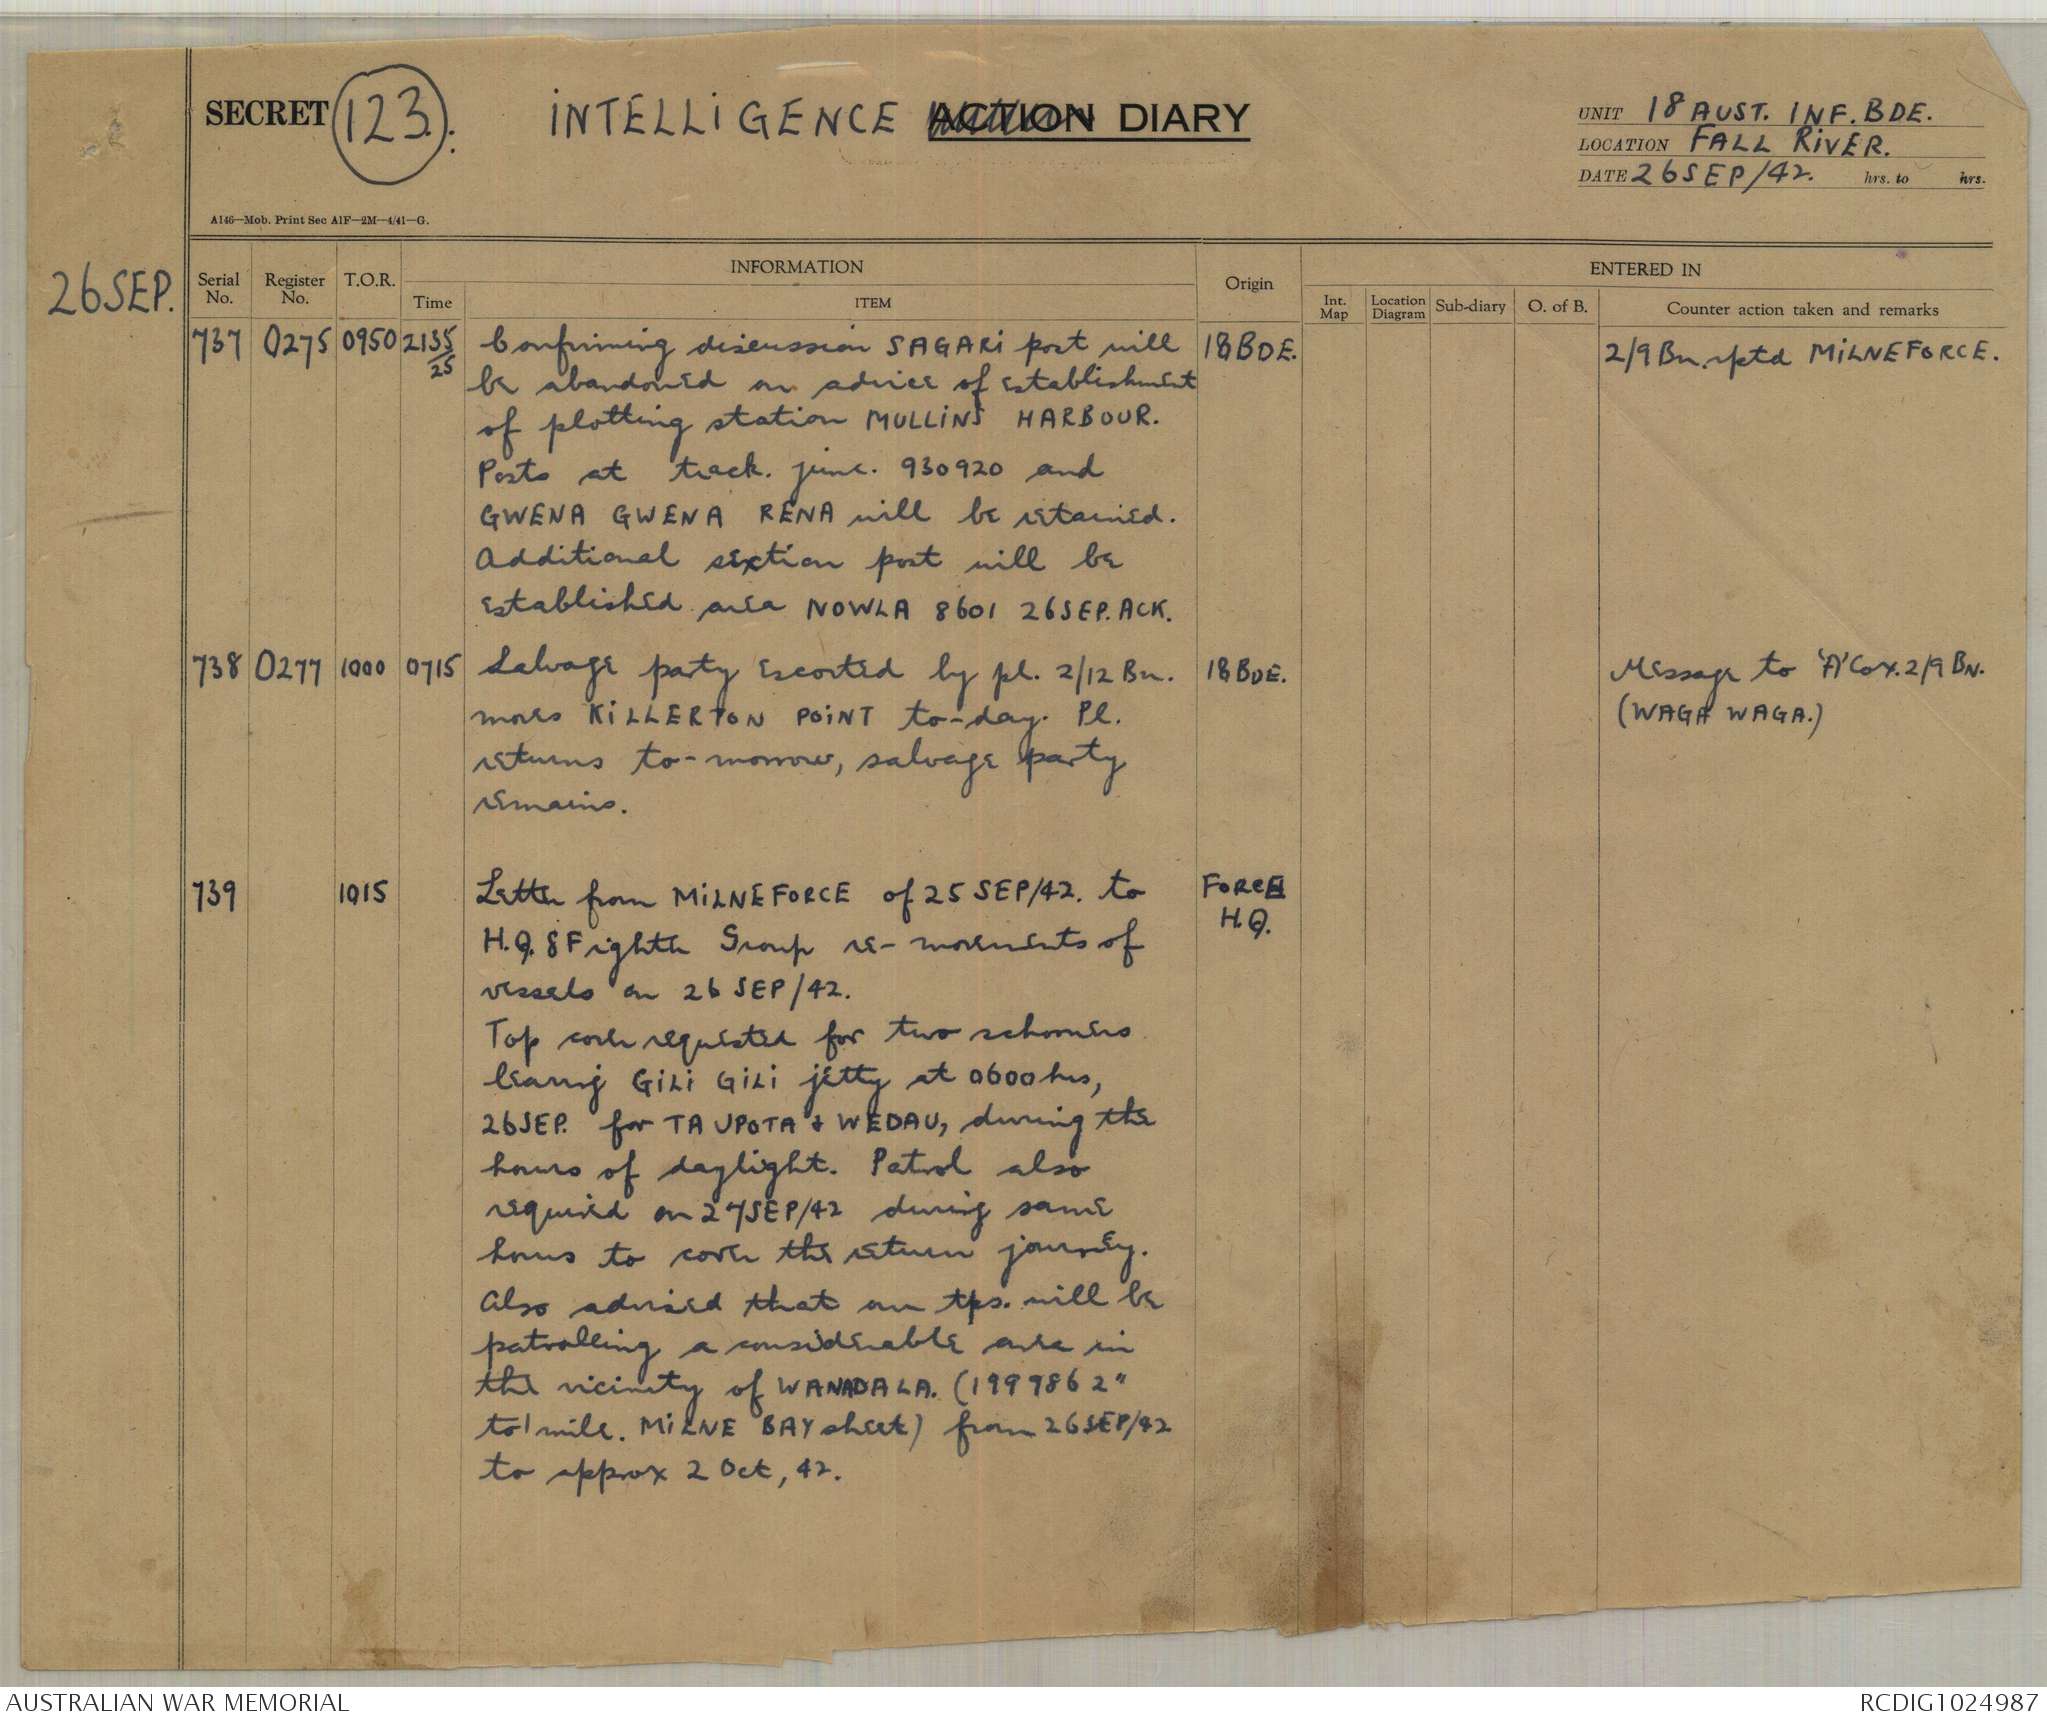 SECRET 123. INTELLIGENCE ACTION DIARY
UNIT 18 AUST. INF. BDE.
LOCATION FALL RIVER.
DATE 26 SEP/42. hrs. to hrs.
A146—Mob. Print Sec AIF—2M—4/41—G.
26 SEP.
Serial No. Register No. T.O.R. INFORMATION Origin ENTERED IN
Time ITEM Int. Map Location Diagram Sub-diary O. of B. Counter action taken and remarks
737 0275 0950 2135/25 Confirming discussion SAGARI post will 18 BDE. 2/9 Bn. rptd MILNEFORCE.
be abandoned on advice of establishment
of plotting station MULLINS HARBOUR.
Posts at track. junc. 930920 and
GWENA GWENA RENA will be retained.
Additional section post will be
established area NOWLA 8601 26 SEP. ACK.
738 0277 1000 0715 Salvage party escorted by pl. 2/12 Bn. 18 BDE. Message to 'A' Coy. 2/9 BN.
moves KILLERTON POINT to-day. Pl. (WAGA WAGA.)
returns to-morrow, salvage party
remains.
739 1015 Letter from MILNEFORCE of 25 SEP/42. to FORCE
H.Q. 8 Fighter Group re- movements of H.Q.
vessels on 26 SEP/42.
Top cover requested for two schooners
leaving GILI GILI jetty at 0600 hrs,
26 SEP. for TAUPOTA & WEDAU, during the
hours of daylight. Patrol also
required on 27 SEP/42 during same
hours to cover the return journey.
Also advised that our tps. will be
patrolling a considerable area in
the vicinity of WANADALA. (199986 2"
to 1 mile. MILNE BAY sheet) from 26 SEP/42
to approx 2 Oct, 42.
AUSTRALIAN WAR MEMORIAL RCDIG1024987